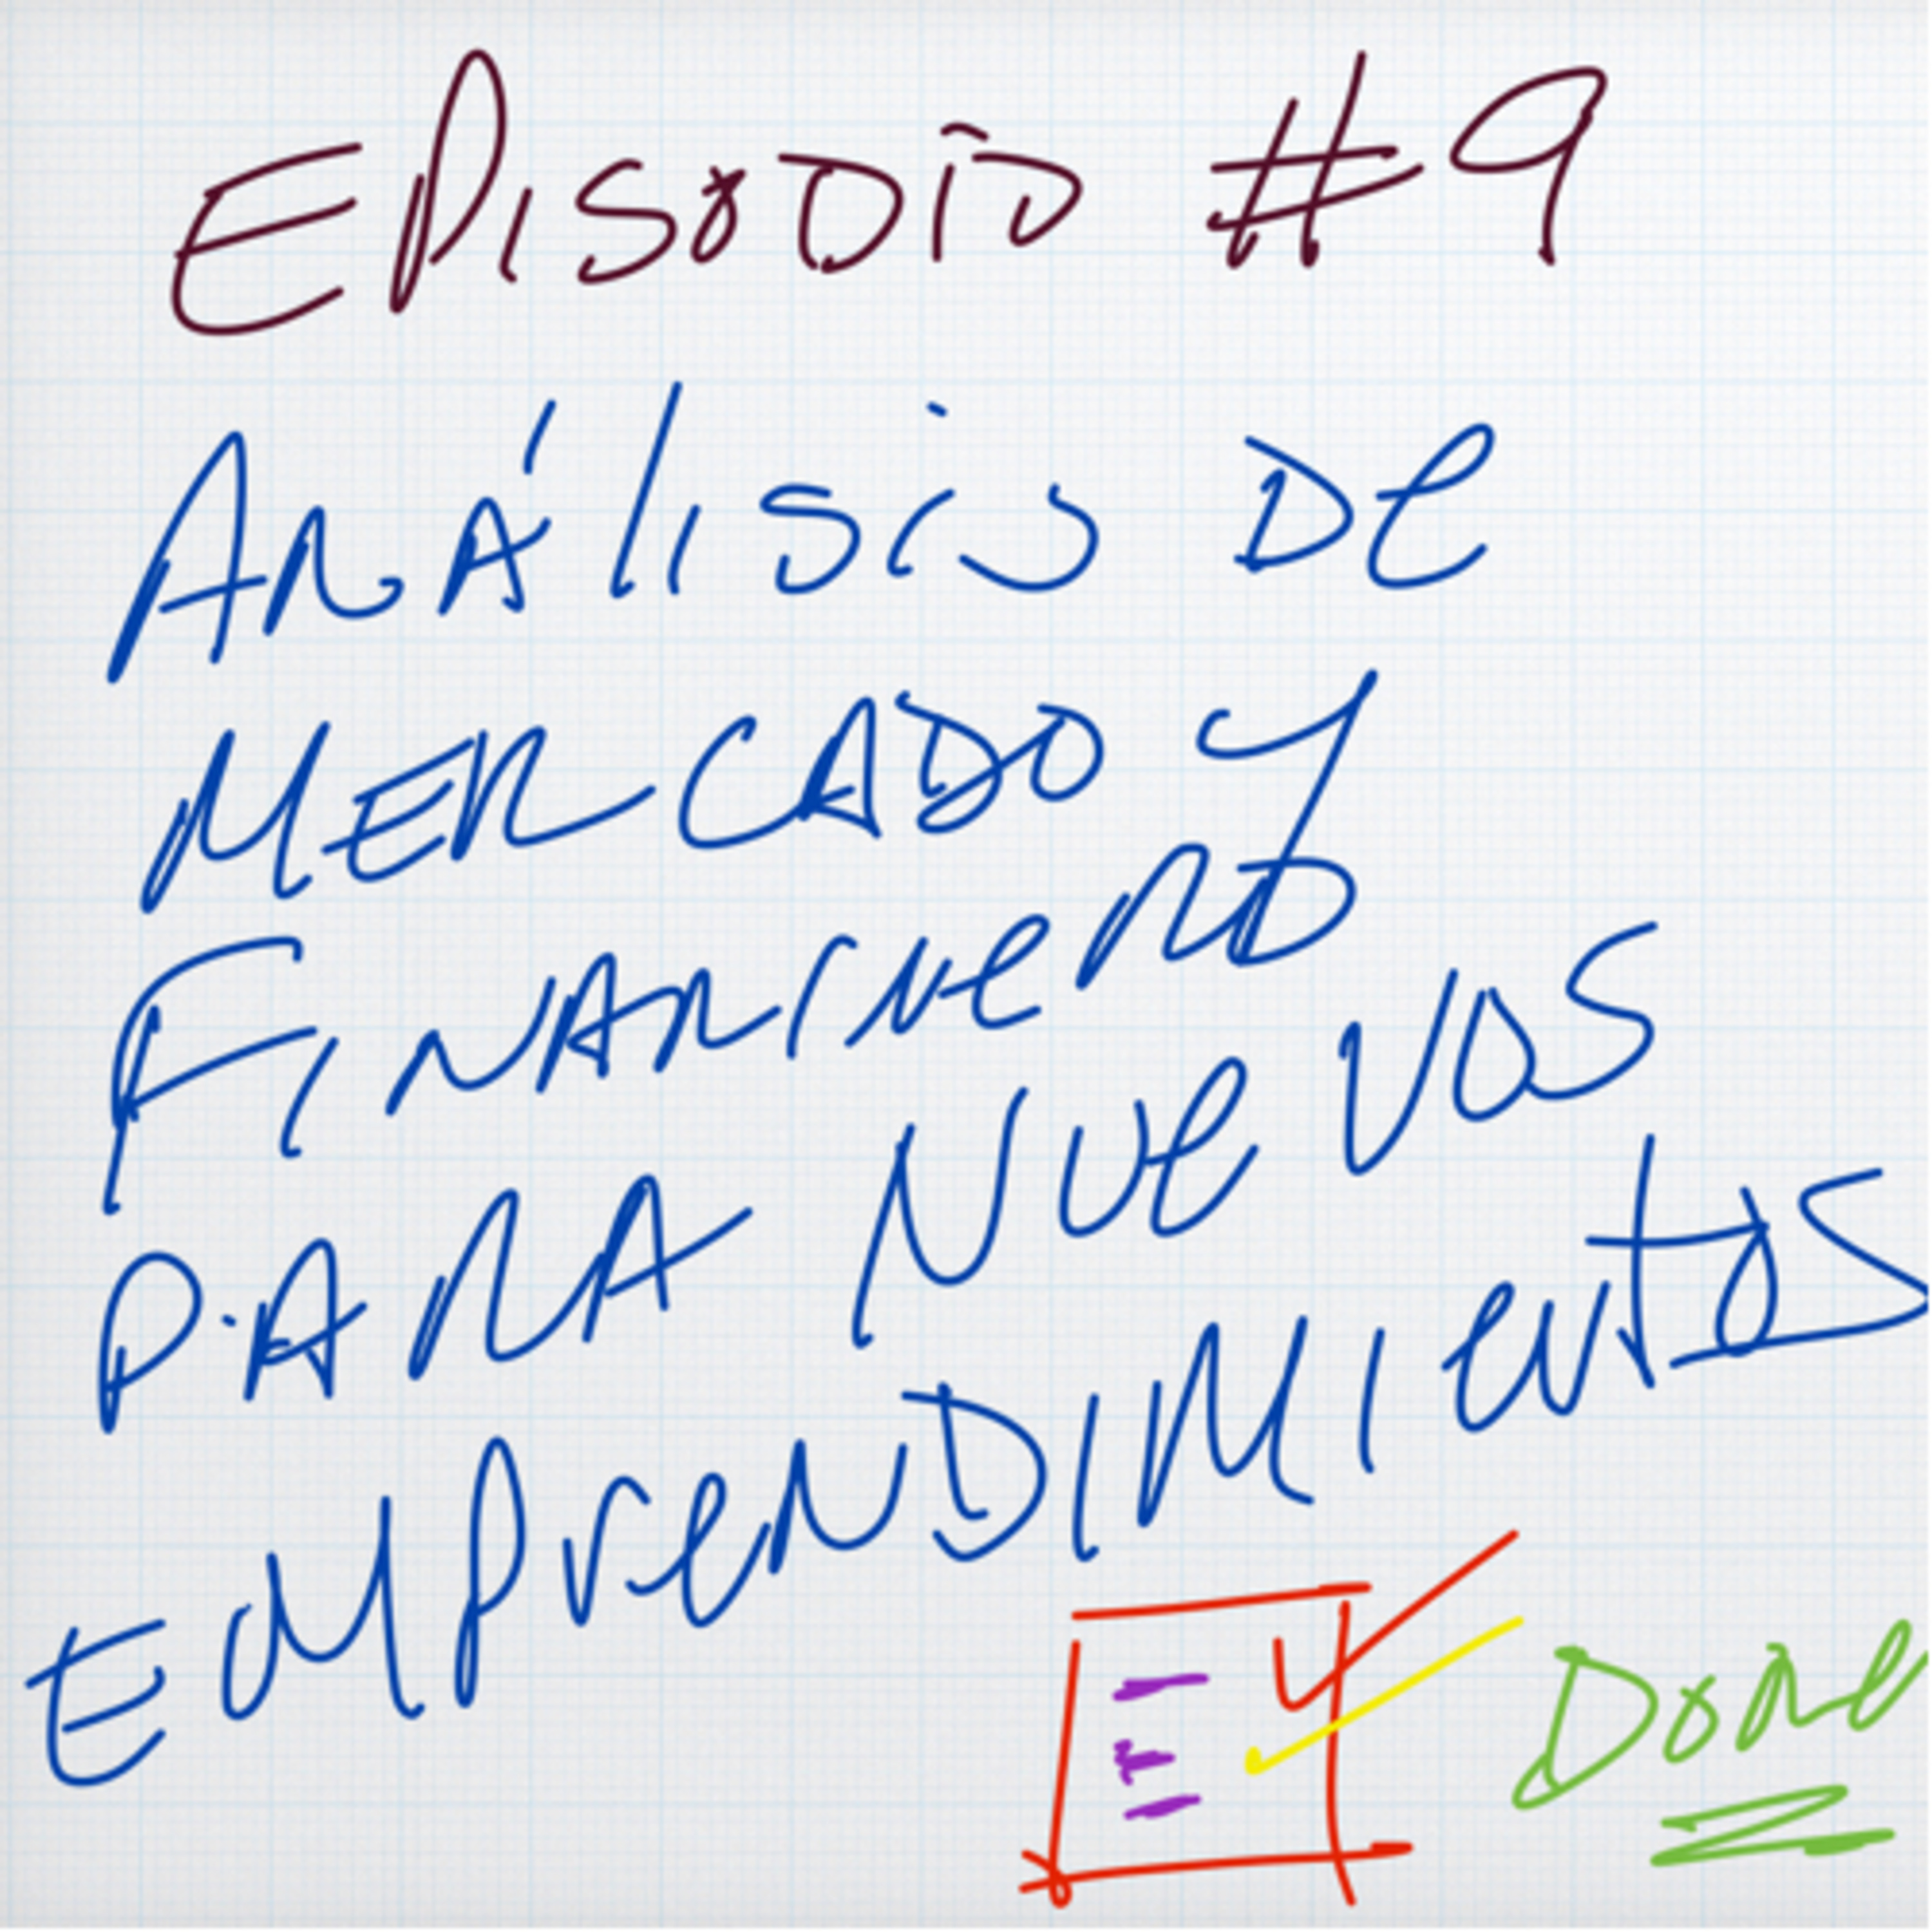 EPISODIO #9
ANÁlisis De
MERCADO Y
FINANCIERO
PARA NUEVOS
EMPRENDIMIENTOS
Done